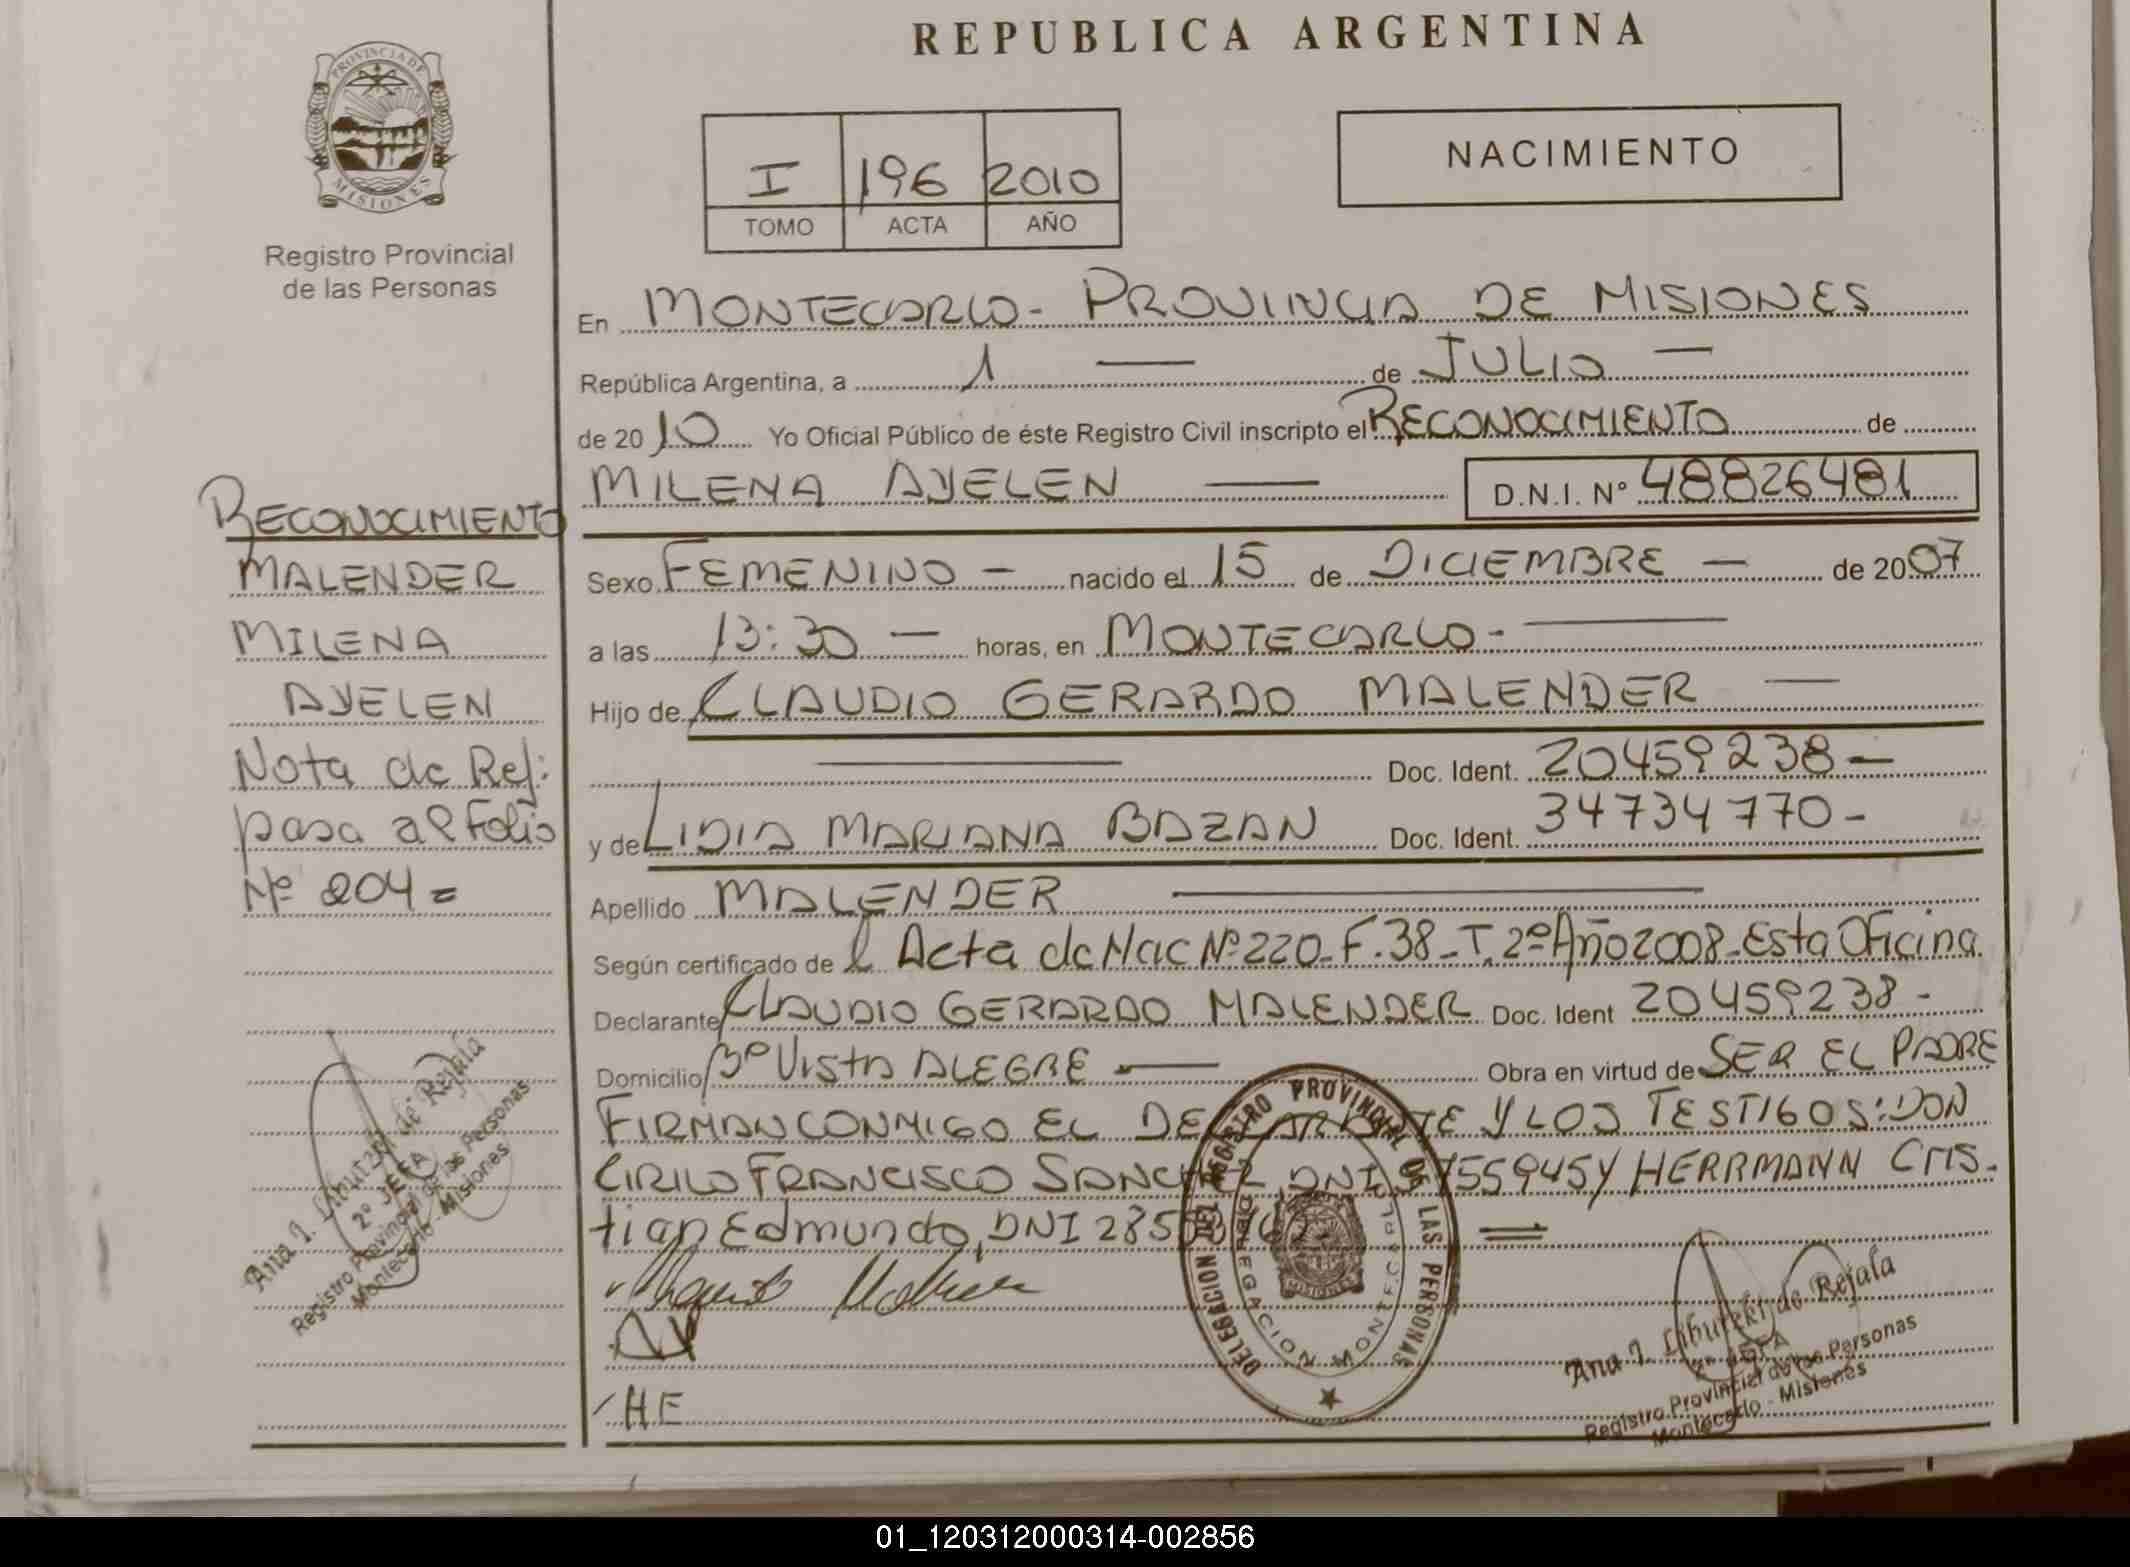 REPUBLICA ARGENTINA
PROVINCIA DE
MISIONES
Registro Provincial
de las Personas
I 196 2010
TOMO ACTA AÑO
NACIMIENTO
En MONTECARLO - PROVINCIA DE MISIONES
República Argentina, a 1 — de JULIO —
de 2010 Yo Oficial Público de éste Registro Civil inscripto el RECONOCIMIENTO de
MILENA AYELEN — D.N.I. Nº 48826481
Sexo FEMENINO — nacido el 15 de DICIEMBRE — de 2007
a las 13:30 — horas, en MONTECARLO -
Hijo de CLAUDIO GERARDO MALENDER —
Doc. Ident. 20459238 —
y de LIDIA MARIANA BAZAN Doc. Ident. 34734770 -
Apellido MALENDER
Según certificado de l Acta de Nac Nº 220_F.38_T.2º Año 2008_Esta Oficina
Declarante CLAUDIO GERARDO MALENDER Doc. Ident 20459238 -
Domicilio Bº VISTA ALEGRE — Obra en virtud de SER EL PADRE
FIRMAN CONMIGO EL DECLARANTE Y LOS TESTIGOS: DON
CIRILO FRANCISCO SANCHEZ, DNI 7559945 Y HERRMANN CRIS-
tian Edmundo, DNI
HE
RECONOCIMIENTO
MALENDER
MILENA
AYELEN
Nota de Ref:
pasa al Folio
Nº 204 =
Ana I. de Rejala
2º JEFA
Registro Provincial de las Personas
Montecarlo - Misiones
DELEGACION DEL REGISTRO PROVINCIAL DE LAS PERSONAS
DELEGACION MONTECARLO
MISIONES
Ana I. de Rejala
2º JEFA
Registro Provincial de las Personas
Montecarlo - Misiones
01_120312000314-002856